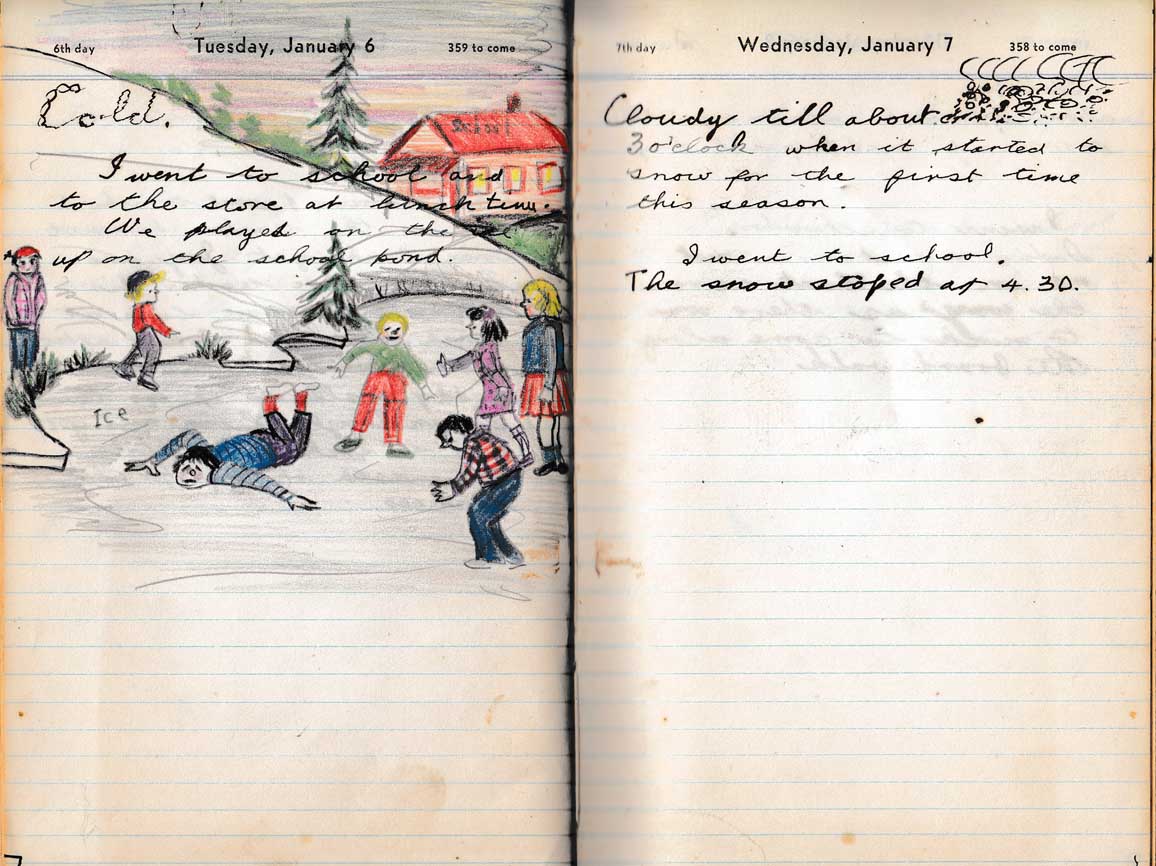 6th day Tuesday, January 6 359 to come
Cold.
School
I went to school and
to the store at lunch time.
We played on the ice
up on the school pond.
Ice
7th day Wednesday, January 7 358 to come
Cloudy till about
3 o'clock when it started to
snow for the first time
this season.
I went to school.
The snow stoped at 4.30.